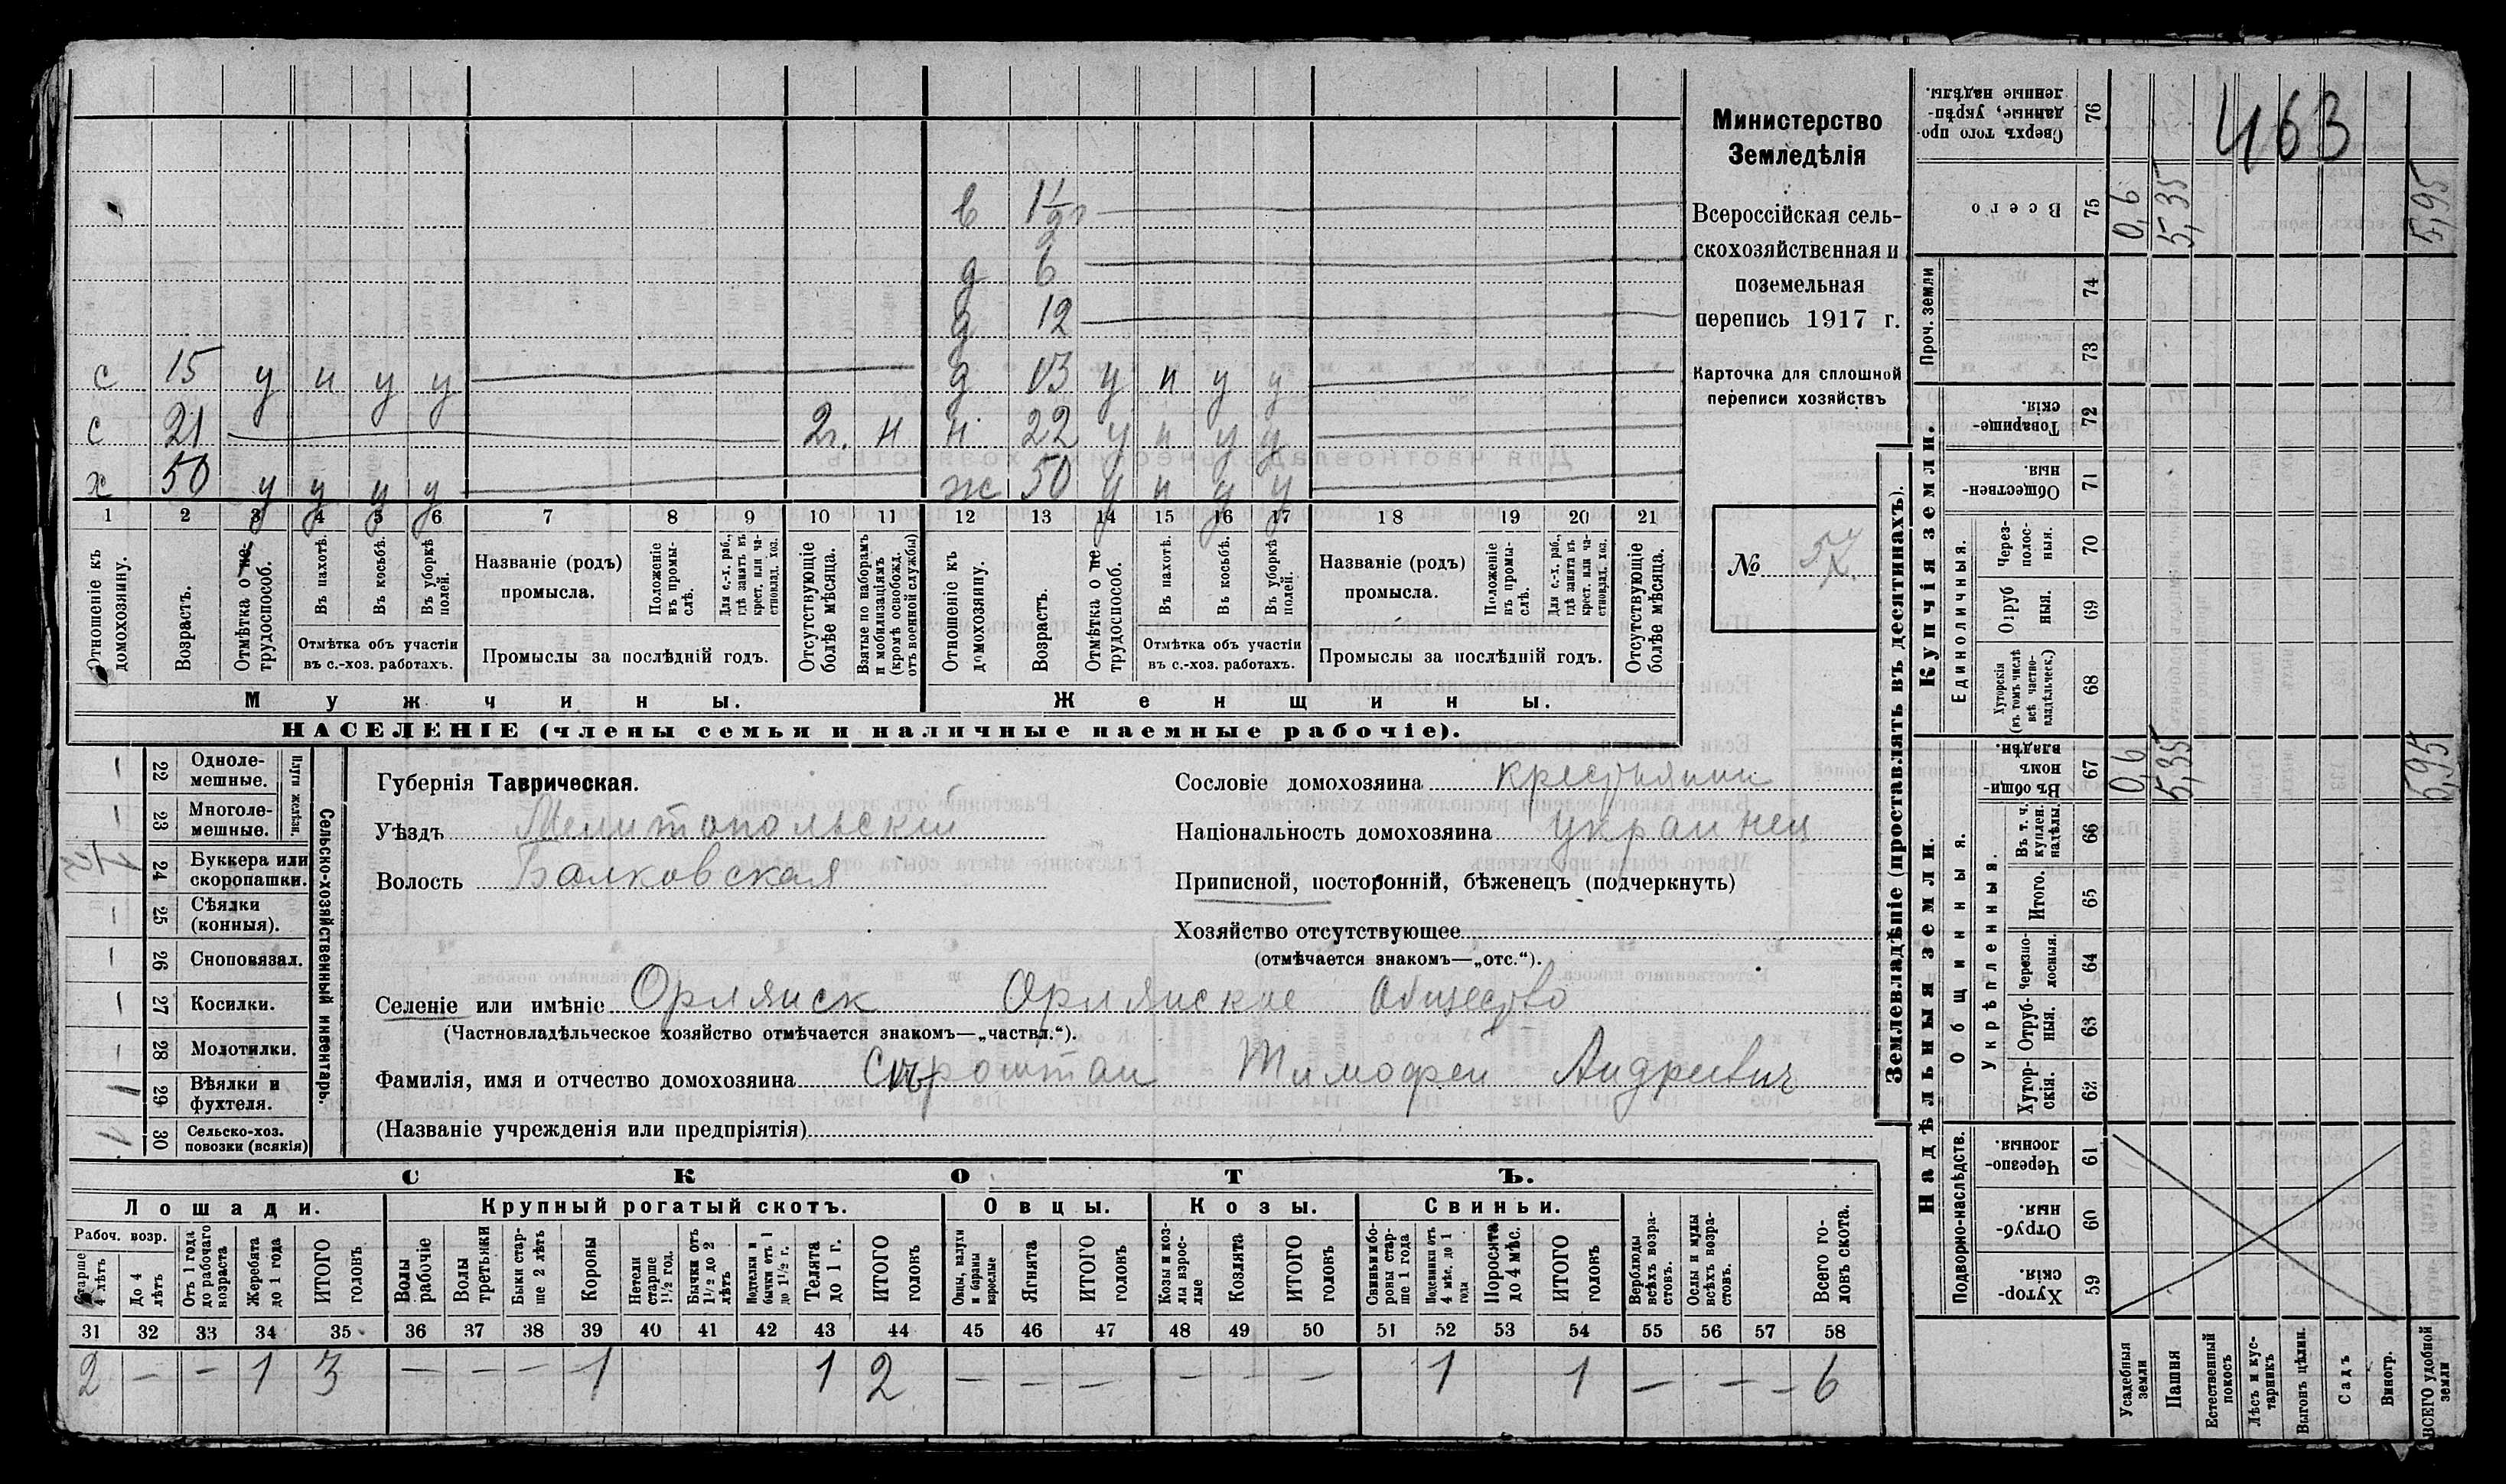 463
Министерство
Земледѣлія
Всероссійская сель-
скохозяйственная и
поземельная
перепись 1917 г.
Карточка для сплошной
переписи хозяйствъ
№
в 1½ г
д 6
д 12
с 15 у п у у д 13 у п у у
с 21 2г. н н 22 у п у у
х 50 у у у у ж 50 у п у у
1 2 3 4 5 6 7 8 9 10 11 12 13 14 15 16 17 18 19 20 21
Отношеніе къ домохозяину.
Возрастъ.
Отмѣтка о не-трудоспособ.
Въ пахотѣ.
Въ косьбѣ.
Въ уборкѣ полей.
Отмѣтка объ участіи
въ с.-хоз. работахъ.
Названіе (родъ)
промысла.
Положеніе въ промы-слѣ.
Для с.-х. раб., гдѣ занятъ въ крест. или ча-стновлад. хоз.
Промыслы за послѣдній годъ.
Отсутствующіе болѣе мѣсяца.
Взятые по наборамъ и мобилизаціямъ (кромѣ освобожд. отъ военной службы)
Отношеніе къ домохозяину.
Возрастъ.
Отмѣтка о не трудоспособ.
Въ пахотѣ.
Въ косьбѣ.
Въ уборкѣ полей.
Отмѣтка объ участіи
въ с.-хоз. работахъ.
Названіе (родъ)
промысла.
Положеніе въ промы-слѣ.
Для с.-х. раб., гдѣ занята въ крест. или ча-стновлад. хоз.
Промыслы за послѣдній годъ.
Отсутствующіе болѣе мѣсяца.
Мужчины. Женщины.
НАСЕЛЕНІЕ (члены семьи и наличные наемные рабочіе).
Сельско-хозяйственный инвентарь.
Плуги желѣзн.
22 Одноле-мешные.
23 Многоле-мешные.
24 Буккера или скоропашки.
25 Сѣялки (конныя).
26 Сноповязал.
27 Косилки.
28 Молотилки.
29 Вѣялки и фухтеля. 1
30 Сельско-хоз. повозки (всякія) 1
Губернія Таврическая.
Уѣздъ Мелитопольскій
Волость Балковская
Сословіе домохозяина крестьянин
Національность домохозяина украинец
Приписной, посторонній, бѣженецъ (подчеркнуть)
Хозяйство отсутствующее
(отмѣчается знакомъ—„отс.“).
Селеніе или имѣніе Орлянск Орлянское общество
(Частновладѣльческое хозяйство отмѣчается знакомъ—„частвл.“).
Фамилія, имя и отчество домохозяина Сыроштан Тимофей Андреевич
(Названіе учрежденія или предпріятія)
СКОТЪ.
Лошади. Крупный рогатый скотъ. Овцы. Козы. Свиньи.
Рабоч. возр.
Старше 4 лѣтъ
До 4 лѣтъ
Отъ 1 года до рабочаго возраста
Жеребята до 1 года
ИТОГО головъ
Волы рабочіе
Волы третьяки
Быки стар-ше 2 лѣтъ
Коровы
Нетели старше 1½ год.
Бычки отъ 1½ до 2 лѣтъ
Подтелки и бычки отъ 1 до 1½ г.
Телята до 1 г.
ИТОГО головъ
Овцы, валухи и бараны взрослые
Ягнята
ИТОГО головъ
Козы и коз-лы взрос-лые
Козлята
ИТОГО головъ
Свиньи бо-ровы стар-ше 1 года
Подсвинки отъ 4 мѣс. до 1 года
Поросята до 4 мѣс.
ИТОГО головъ
Верблюды всѣхъ возра-стовъ.
Ослы и мулы всѣхъ возра-стовъ.
Всего го-ловъ скота.
31 32 33 34 35 36 37 38 39 40 41 42 43 44 45 46 47 48 49 50 51 52 53 54 55 56 57 58
2 — — 1 3 — — — 1 1 2 — — — — — — 1 1 — — — 6
Землевладѣніе (проставлять въ десятинахъ).
Надѣльныя земли. Купчія земли. Проч. земли
Подворно-наслѣдств.
Общинныя.
Укрѣпленныя.
Единоличныя.
76 Сверхъ того про-данные, укрѣп-ленные надѣлы.
75 Всего 0,6 5,35 5,95
74
73
72 Товарище-скія.
71 Обществен-ныя
70 Через-полос-ныя.
69 Отруб ныя.
68 Хуторскія (въ томъ числѣ всѣ частно-владѣльческ.)
67 Въ общи-номъ владѣн. 0,6 5,35 5,95
66 Въ т. ч. куплен. надѣлы.
65 Итого.
64 Черезпо-лосныя.
63 Отруб-ныя.
62 Хутор-скія.
61 Черезпо-лосныя.
60 Отруб-ныя.
59 Хутор-скія.
Усадебныя земли
Пашня
Естественный покосъ
Лѣсъ и кус-тарникъ
Выгонъ цѣлин.
Садъ
Виногр.
ВСЕГО удобной земли